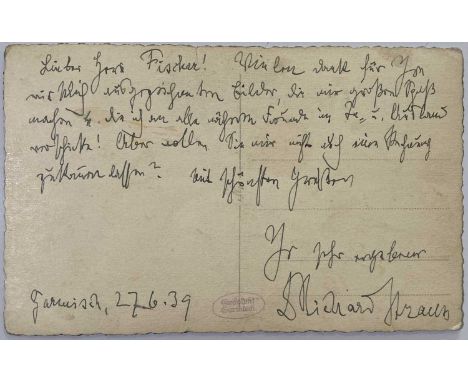 Lieber Herr Fischer! Vielen Dank für Ihre
wirklich ausgezeichneten Bilder, die mir großen Spaß
machen u. die ich an alle näheren Freunde im In- u. Ausland
verschicke! Aber wollen Sie mir nicht auch eine Rechnung
zukommen lassen? Mit schönsten Grüßen
Ihr sehr ergebener
Dr Richard Strauss
Garmisch, 27.6.39